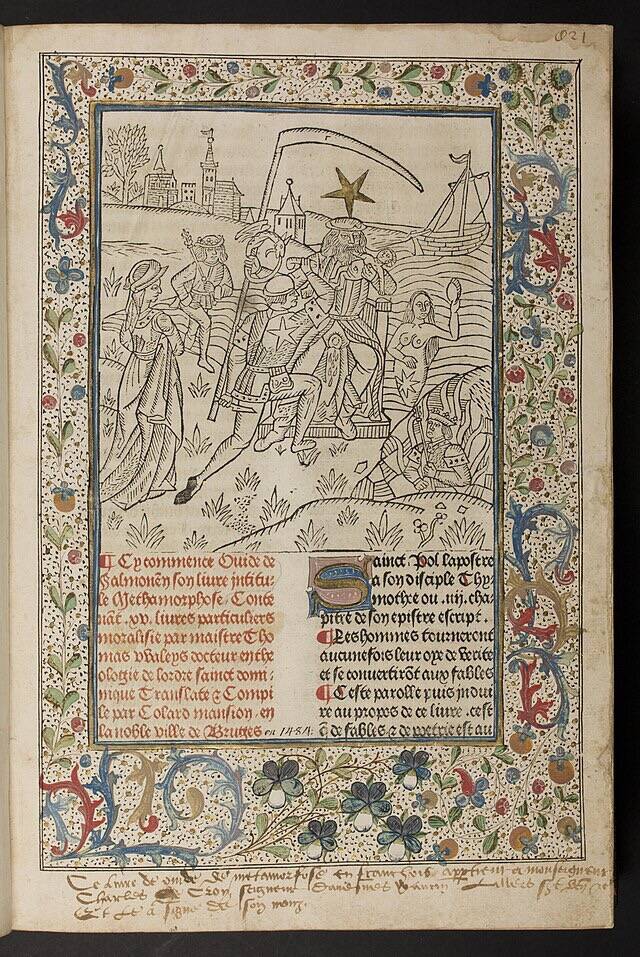 ¶ Cy commence Ouide de
Salmonen son liure intitu-
le Methamorphose. Conte
nāt .xv. liures particuliers
moralisie par maistre Tho
mas Waleys docteur en the
ologie de lordre sainct domi-
nique Translate & Compi
le par Colard mansion en
la noble ville de Bruges en 1484.
Sainct Pol lapostre
a son disciple Thy
mothee ou .iiij. cha-
pitre de son epistre escript.
¶ Les hommes tourneront
aucunefois leur oye de verite
et se convertirōt aux fables
¶ Ceste parolle puis indui
re au propos de ce liure. cest
de fables & de poetrie est au
Ce liure de ouide de metamorfose en franchois appertient a monseigneur
Charles de Croy, seigneur
Et le a signe de son nom.